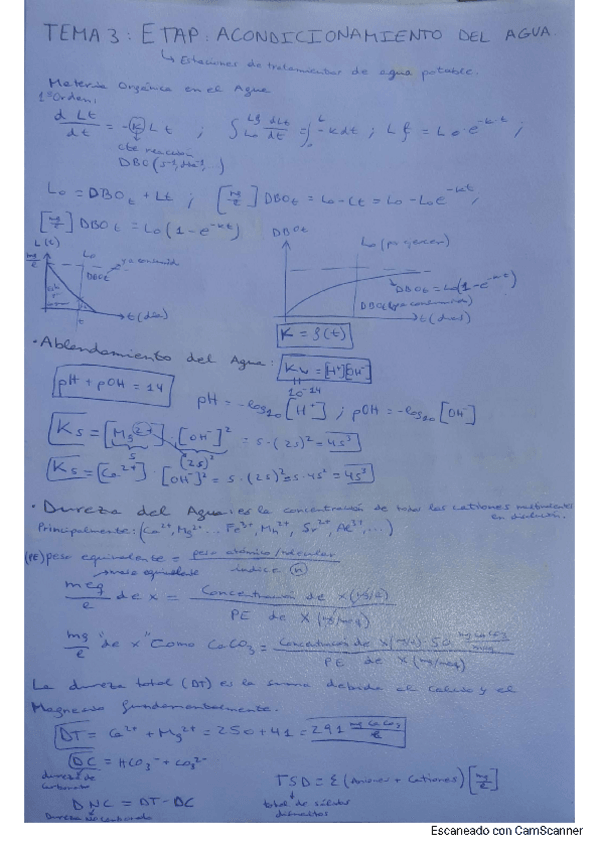 TEMA 3: ETAP: ACONDICIONAMIENTO DEL AGUA.
↳ Estaciones de tratamientos de agua potable.
Materia Orgánica en el Agua
1º Orden:
d Lt / dt = -K Lt ; ∫ dLt / dt = ∫ -kdt ; Lf = Lo·e^-kt ;
cte reacción
DBO
Lo = DBOt + Lt ; [mg/l] DBOt = Lo - Lt = Lo - Loe^-kt ;
[mg/l] DBOt = Lo(1 - e^-kt)
DBOt
L(t)
mg/l
Lo
DBOt
t(días)
Lo (por ejercer)
DBOt = Lo(1 - e^-kt)
t(días)
K = f(t)
• Ablandamiento del Agua:
Kw = [H⁺][OH⁻]
10⁻¹⁴
pH + pOH = 14
pH = -log₁₀[H⁺] ; pOH = -log₁₀[OH⁻]
Ks = [Mg²⁺]·[OH⁻]² = s·(2s)² = 4s³
s (2s)²
Ks = [Ca²⁺]·[OH⁻]² = s·(2s)² = s·4s² = 4s³
• Dureza del Agua: es la concentración de todos los cationes multivalentes en disolución.
Principalmente: (Ca²⁺, Mg²⁺ ... Fe³⁺, Mn²⁺, Sr²⁺, Al³⁺, ...)
(PE) peso equivalente = peso atómico/molecular / índice (n)
→ masa equivalente
meq/l de X = Concentración de X (mg/l) / PE de X (mg/meq)
mg/l "de X" como CaCO₃ = Concentración de X (mg/l) · 50 mg CaCO₃/meq / PE de X (mg/meq)
La dureza total (DT) es la suma debida al Calcio y el
Magnesio fundamentalmente.
DT = Ca²⁺ + Mg²⁺ = 250 + 41 = 291 mg CaCO₃/l
DC = HCO₃⁻ + CO₃²⁻
dureza de carbonatos
TSD = Σ (Aniones + Cationes) [mg/l]
total de sólidos disueltos
DNC = DT - DC
Dureza no carbonato
Escaneado con CamScanner